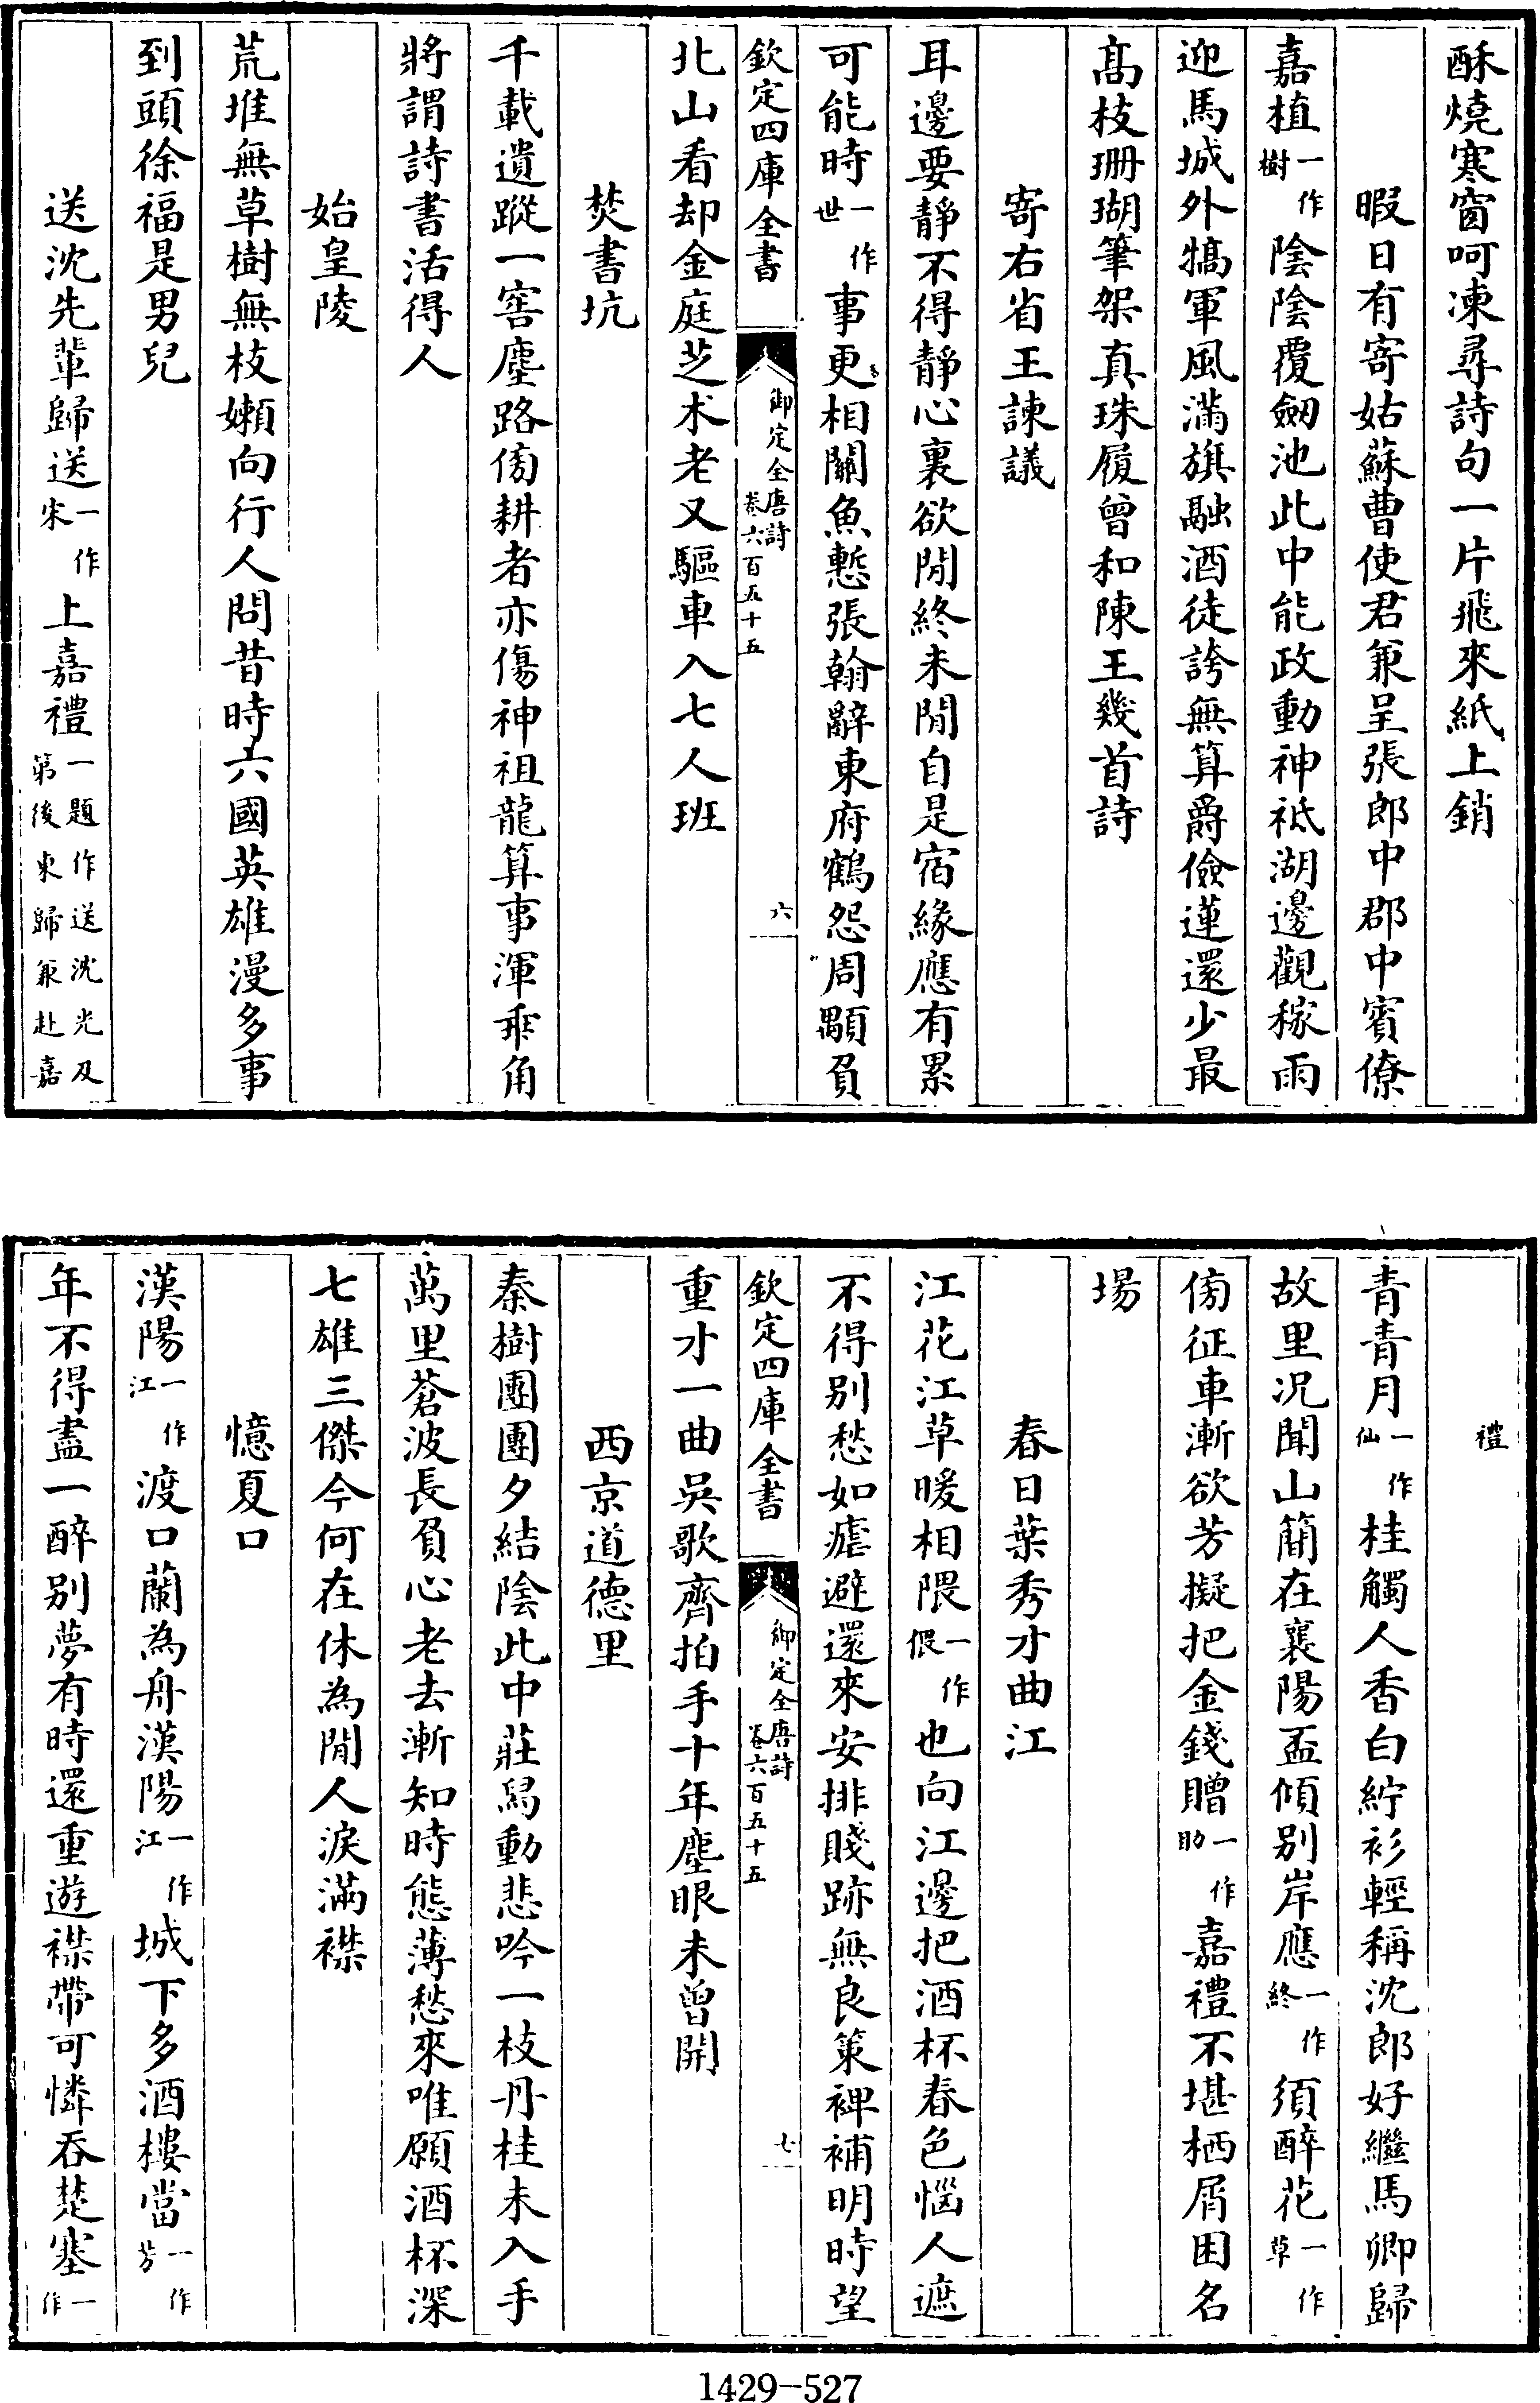 酥燒寒窗呵凍尋詩句一片飛來紙上銷
暇日有寄姑蘇曹使君兼呈張郎中郡中賓僚
嘉植一作樹陰陰覆劒池此中能政動神祗湖邊觀稼雨
迎馬城外犒軍風滿旗融酒徒誇無算爵儉蓮還少最
髙枝珊瑚筆架真珠履曾和陳王幾首詩
寄右省王諫議
耳邊要靜不得靜心裏欲閒終未閒自是宿緣應有累
可能時一作世事更相關魚慙張翰辭東府鶴怨周顒負
欽定四庫全書
御定全唐詩
卷六百五十五
六
北山看却金庭芝术老又驅車入七人班
焚書坑
千載遺蹤一窖塵路傍耕者亦傷神祖龍算事渾乖角
將謂詩書活得人
始皇陵
荒堆無草樹無枝嬾向行人問昔時六國英雄漫多事
到頭徐福是男兒
送沈先輩歸送一作宋上嘉禮一題作送沈光及第後東歸兼赴嘉
禮
青青月一作仙桂觸人香白紵衫輕稱沈郎好繼馬卿歸
故里况聞山簡在襄陽盃傾别岸應一作終須醉花一作草
傍征車漸欲芳擬把金錢贈一作助嘉禮不堪栖屑困名
場
春日葉秀才曲江
江花江草暖相隈一作偎也向江邊把酒杯春色惱人遮
不得别愁如瘧避還來安排賤跡無良策裨補明時望
欽定四庫全書
御定全唐詩
卷六百五十五
七
重才一曲吳歌齊拍手十年塵眼未曾開
西京道德里
秦樹團團夕結陰此中莊舄動悲吟一枝丹桂未入手
萬里蒼波長負心老去漸知時態薄愁來唯願酒杯深
七雄三傑今何在休為閒人淚滿襟
憶夏口
漢陽一作江渡口蘭為舟漢陽一作江城下多酒樓當一作芳
年不得盡一醉别夢有時還重遊襟帶可憐吞楚塞一作
1429-527